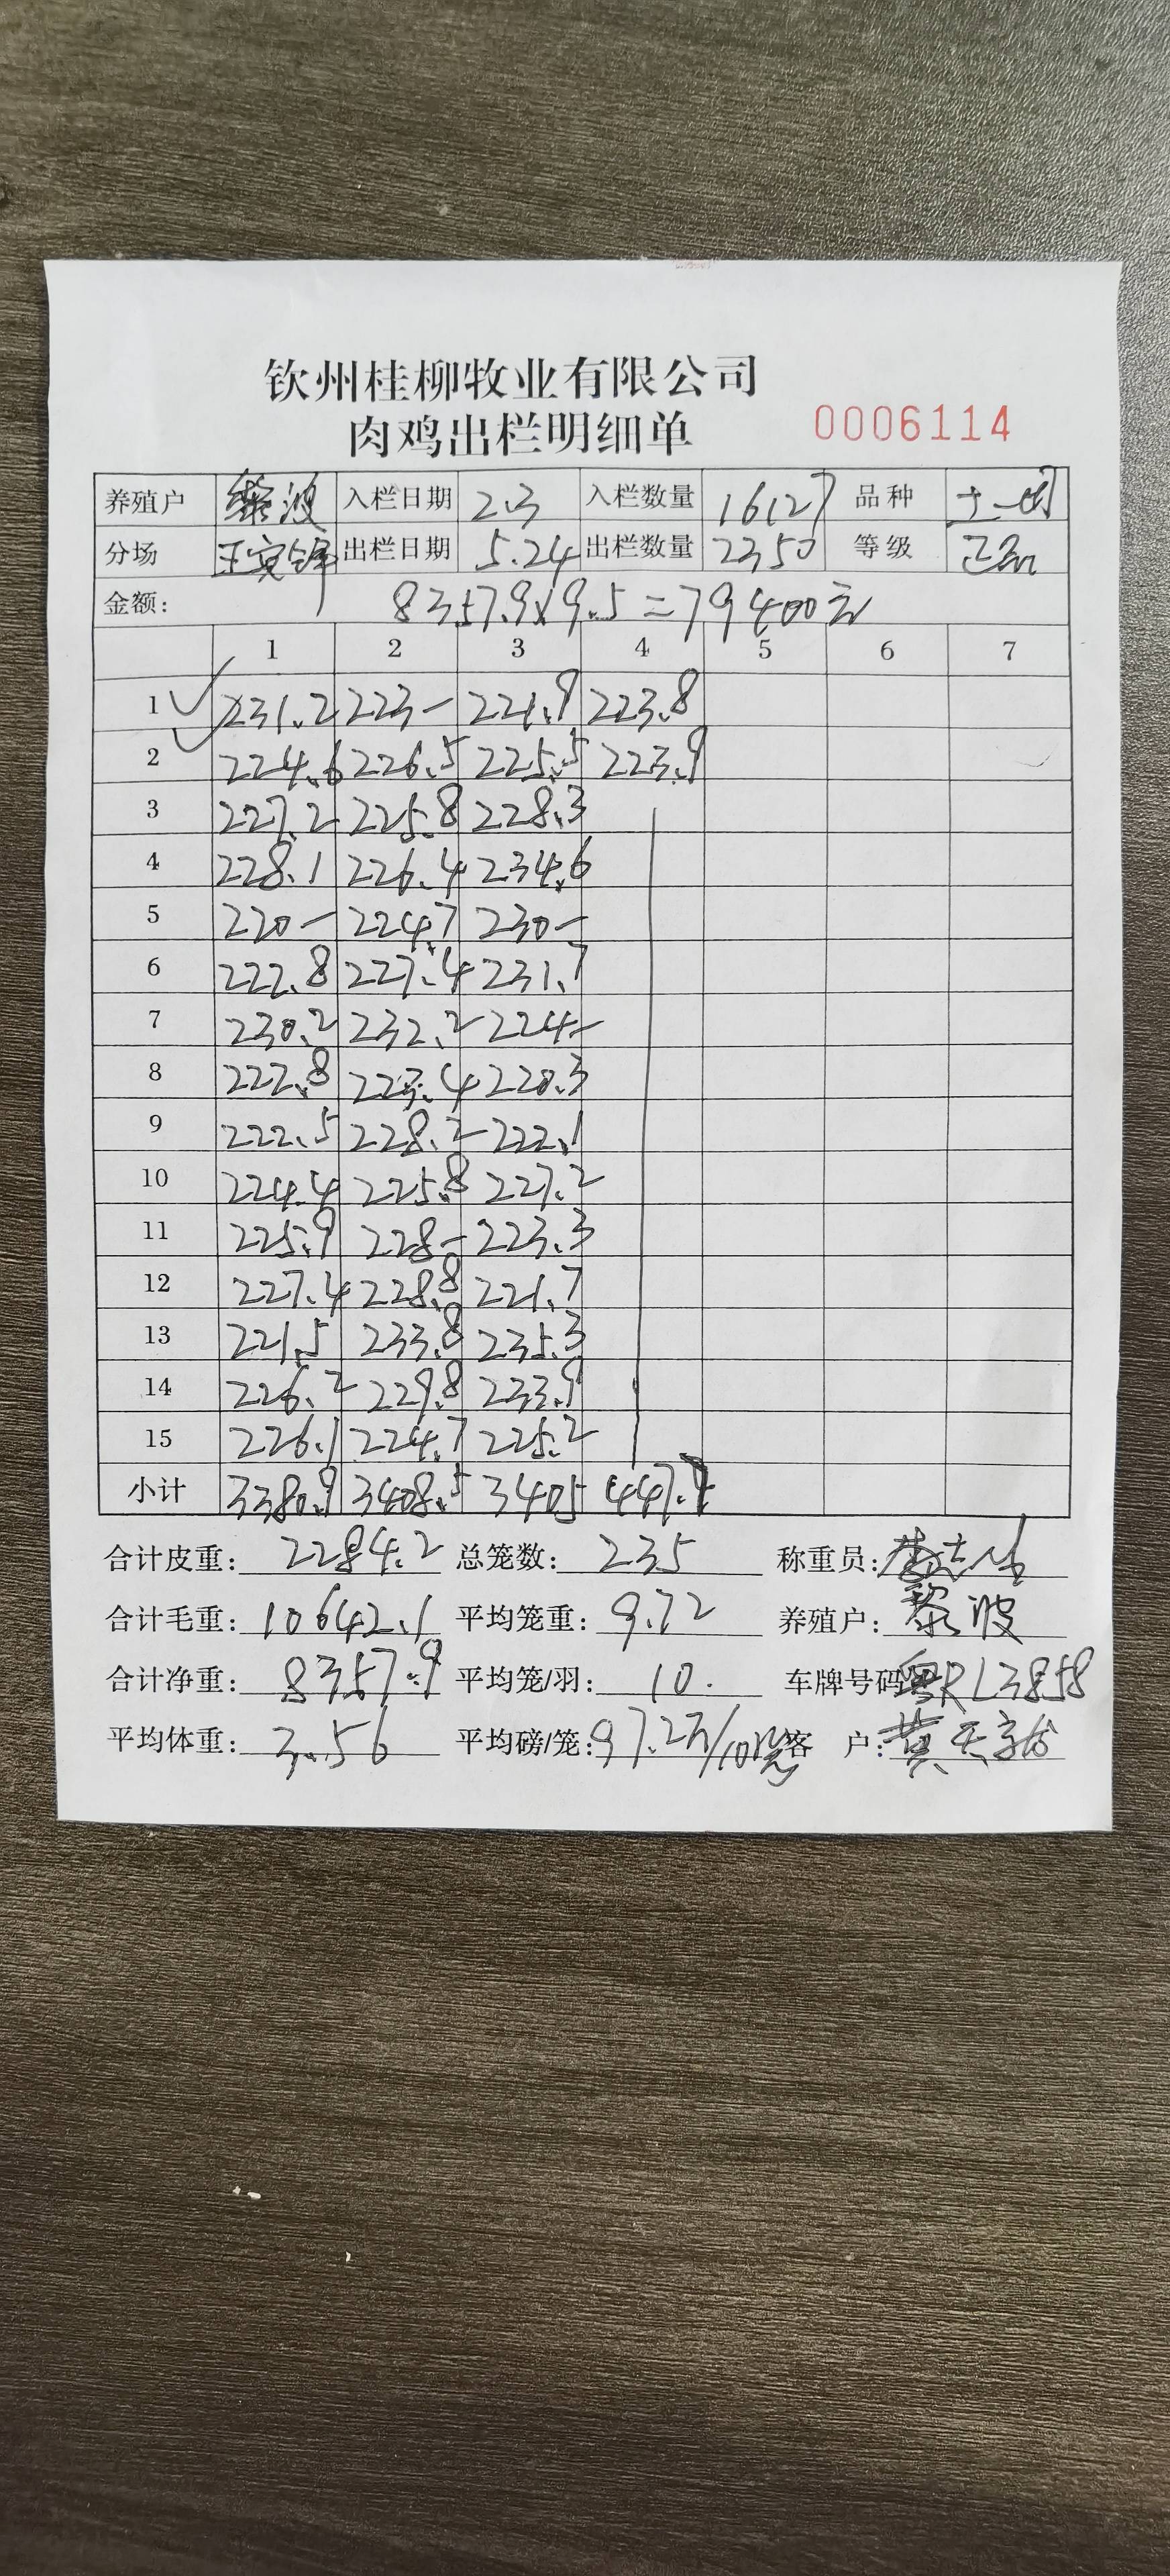 钦州桂柳牧业有限公司
肉鸡出栏明细单 0006114
养殖户 黎波 入栏日期 2.3 入栏数量 16127 品种 土一
分场 出栏日期 5.24 出栏数量 2350 等级 正品
金额: 8357.9×9.5=79400元
1 2 3 4 5 6 7
1 231.2 223- 221.9 223.8
2 224.6 226.5 225.5 223.9
3 227.2 225.8 228.3
4 228.1 226.4 234.6
5 220- 224.7 230-
6 222.8 227.4 231.7
7 230.2 232.2 224-
8 222.8 223.4 220.3
9 222.5 228.2 222.1
10 224.4 225.8 227.2
11 225.9 228- 223.3
12 227.4 228.8 221.7
13 221.5 233.8 235.3
14 226.2 229.8 233.9
15 226.1 224.7 225.2
小计 3380.9 3408.5 3405 447.7
合计皮重: 2284.2 总笼数: 235 称重员:
合计毛重: 10642.1 平均笼重: 9.72 养殖户: 黎波
合计净重: 8357.9 平均笼/羽: 10. 车牌号码 粤RL3858
平均体重: 3.56 平均磅/笼: 97.2斤/10笼 客 户: 黄天